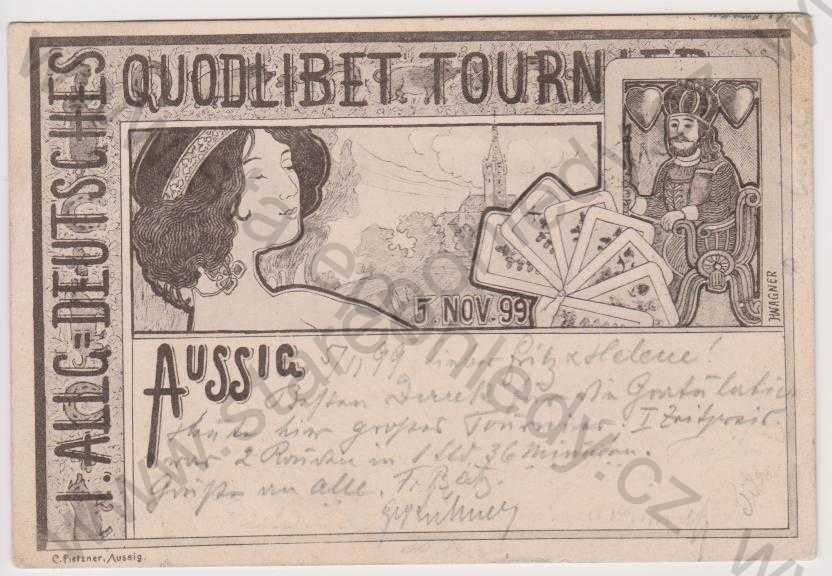 I. ALLG=DEUTSCHES
QUODLIBET TOURNIER
5. NOV. 99
J WAGNER
AUSSIG 5/11 99 Lieber Fritz & Helene!
Besten Dank für die Gratulation
Heute hier großes Tournier. I Zeitpreis
war 2 Runden in 1 Std 36 Minuten.
Grüße an alle.
C. Pietzner, Aussig.
www.starepohledy.cz